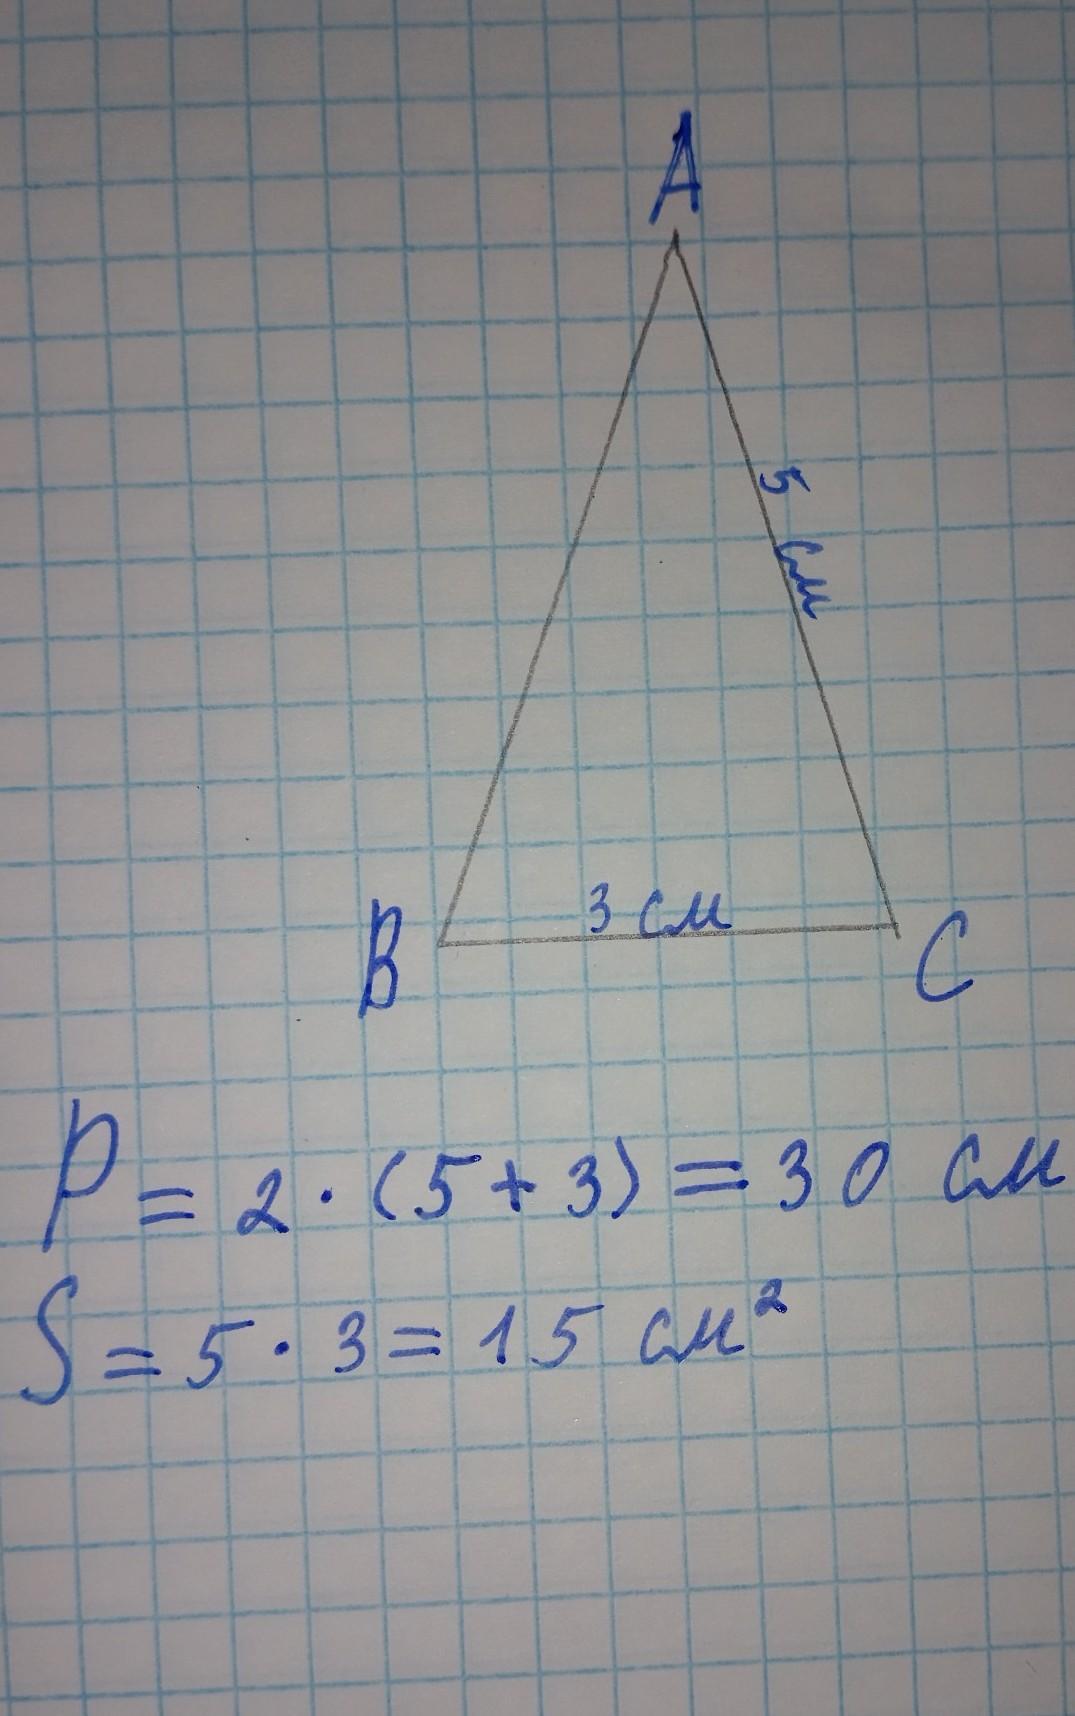 A
5 см
3 см
B
C
P = 2 · (5 + 3) = 30 см
S = 5 · 3 = 15 см²